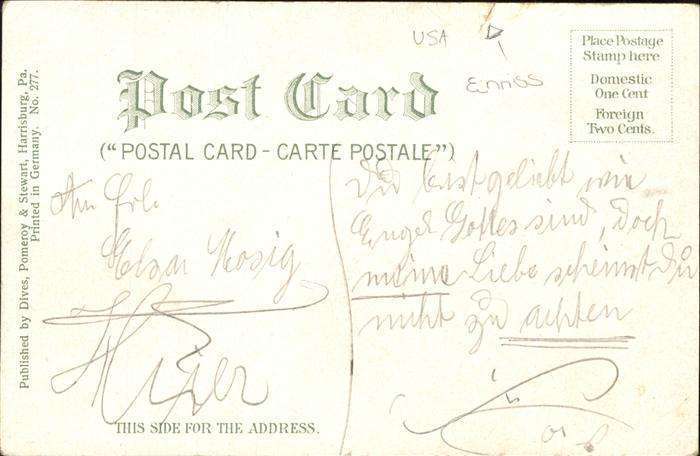 USA
Enniss
Place Postage
Stamp here
Domestic
One Cent
Foreign
Two Cents.
Post Card
("POSTAL CARD - CARTE POSTALE")
Published by Dives, Pomeroy & Stewart, Harrisburg, Pa.
Printed in Germany. No. 277.
An Frl.
Mosig
Hier
Du hast geliebt wie
Engel Gottes sind, doch
meine Liebe scheinst du
nicht zu achten
THIS SIDE FOR THE ADDRESS.